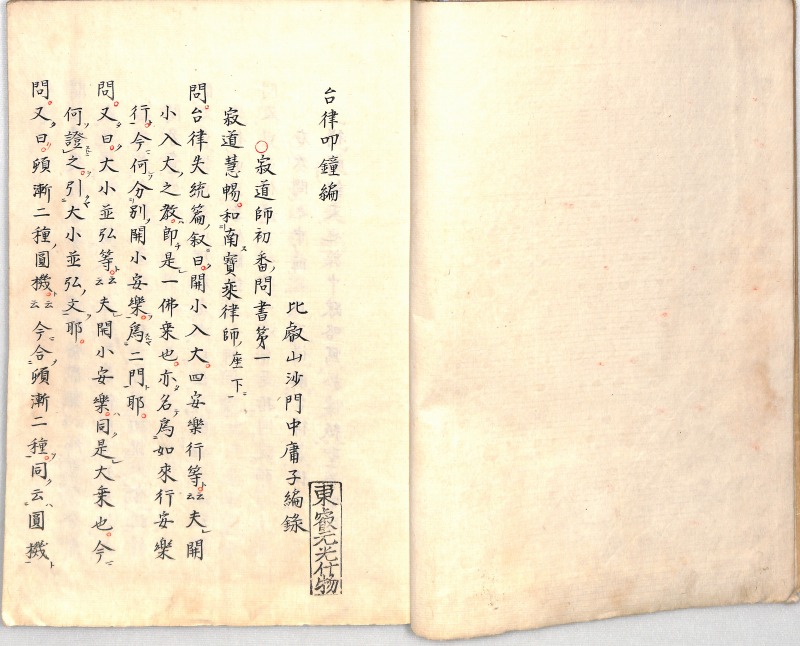 台律叩鐘編
比叡山沙門中庸子編錄
東叡元光什物
〇寂道師初番ノ問書第一
寂道慧暢。和南寶乘律師ノ座下ニ
問。台律失統篇ノ叙ニ曰。開小入大。四安樂行等ト云云。夫レ開
小入大ノ之教。即チ是一佛乗也。亦名為如來行安樂
行。今何分別ノ開小安樂。為二門ト耶。
問。又曰。大小並弘等ト云云。夫開小安樂。同ク是大乗也。今
何證之。引大小並弘ノ文ヲ耶。
問。又曰。頓漸二種ノ圓機ト云云。今合頓漸二種。同ク云圓機ト